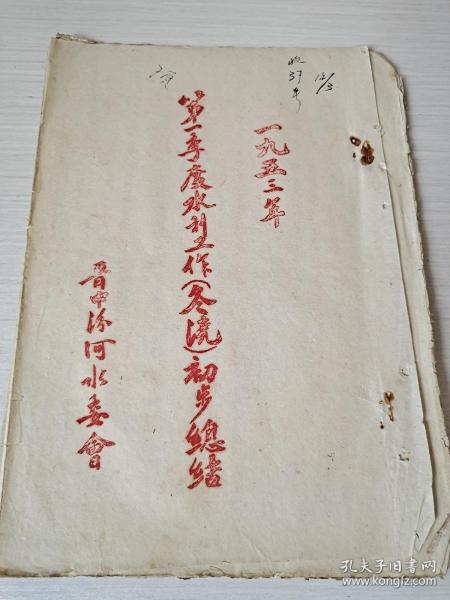 一九五三年
第一季度水利工作(冬浇)初步總結
晋中汾河水委會
收
12/3
孔夫子旧书网
www.kongfz.com